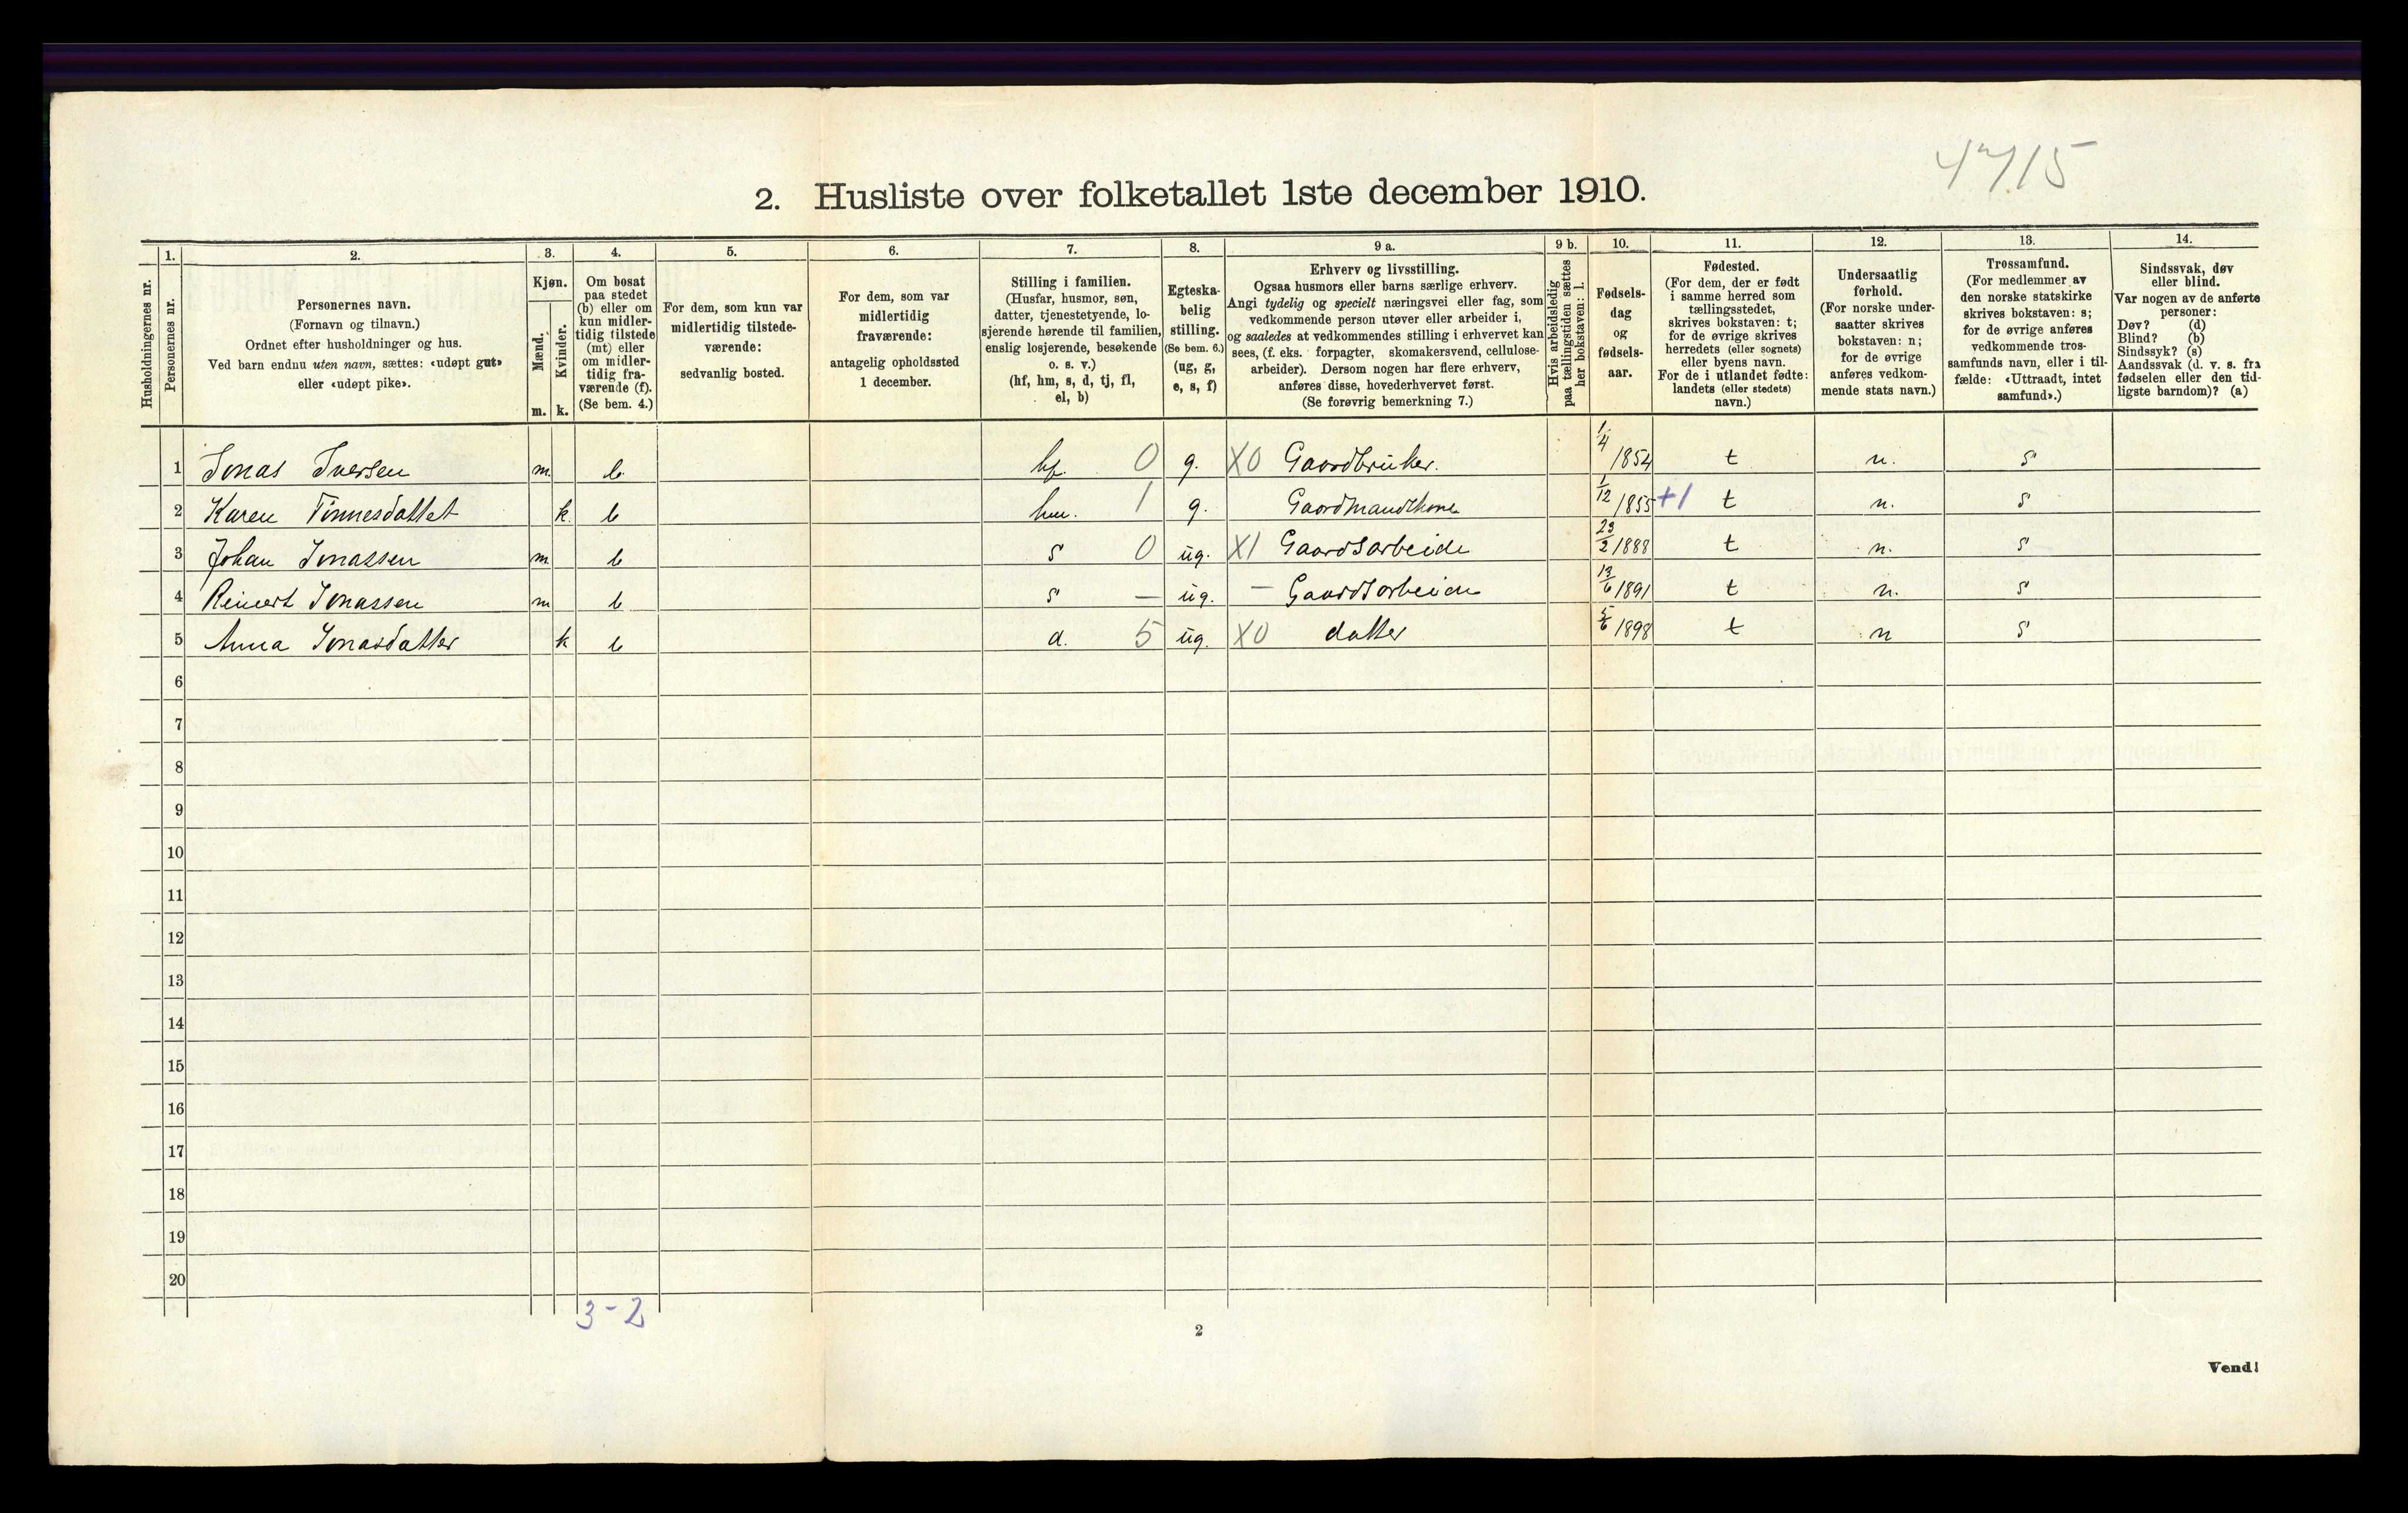 4715
2. Husliste over folketallet 1ste december 1910.
Husholdningernes nr.
1. Personernes nr.
2. Personernes navn.
(Fornavn og tilnavn.)
Ordnet efter husholdninger og hus.
Ved barn endnu uten navn, sættes: «udøpt gut»
eller «udøpt pike».
3. Kjøn.
Mænd. m.
Kvinder. k.
4. Om bosat
paa stedet
(b) eller om
kun midler-
tidig tilstede
(mt) eller
om midler-
tidig fra-
værende (f).
(Se bem. 4.)
5. For dem, som kun var
midlertidig tilstede-
værende:
sedvanlig bosted.
6. For dem, som var
midlertidig
fraværende:
antagelig opholdssted
1 december.
7. Stilling i familien.
(Husfar, husmor, søn,
datter, tjenestetyende, lo-
sjerende hørende til familien,
enslig losjerende, besøkende
o. s. v.)
(hf, hm, s, d, tj, fl,
el, b)
8. Egteska-
belig
stilling.
(Se bem. 6.)
(ug, g,
e, s, f)
9 a. Erhverv og livsstilling.
Ogsaa husmors eller barns særlige erhverv.
Angi tydelig og specielt næringsvei eller fag, som
vedkommende person utøver eller arbeider i,
og saaledes at vedkommendes stilling i erhvervet kan
sees, (f. eks. forpagter, skomakersvend, cellulose-
arbeider). Dersom nogen har flere erhverv,
anføres disse, hovederhvervet først.
(Se forøvrig bemerkning 7.)
9 b. Hvis arbeidsledig
paa tællingstiden sættes
her bokstaven: l.
10. Fødsels-
dag
og
fødsels-
aar.
11. Fødested.
(For dem, der er født
i samme herred som
tællingsstedet,
skrives bokstaven: t;
for de øvrige skrives
herredets (eller sognets)
eller byens navn.
For de i utlandet fødte:
landets (eller stedets)
navn.)
12. Undersaatlig
forhold.
(For norske under-
saatter skrives
bokstaven: n;
for de øvrige
anføres vedkom-
mende stats navn.)
13. Trossamfund.
(For medlemmer av
den norske statskirke
skrives bokstaven: s;
for de øvrige anføres
vedkommende tros-
samfunds navn, eller i til-
fælde: «Uttraadt, intet
samfund».)
14. Sindssvak, døv
eller blind.
Var nogen av de anførte
personer:
Døv? (d)
Blind? (b)
Sindssyk? (s)
Aandssvak (d. v. s. fra
fødselen eller den tid-
ligste barndom)? (a)
1 Jonas Iversen m. b hf. 0 g. X0 Gaardbruker. 1/4 1854 t n. s
2 Karen Tønnesdattet k. b hm. 1 g. Gaardmandskone 1/12 1855 +1 t n. s
3 Johan Jonassen m b s 0 ug. X1 Gaardsarbeide 23/2 1888 t n. s
4 Reinert Jonassen m b s — ug. — Gaardsarbeide 13/6 1891 t n. s
5 Anna Jonasdatter k b d. 5 ug. X0 datter 5/6 1898 t n s
6
7
8
9
10
11
12
13
14
15
16
17
18
19
20
3-2
2
Vend!